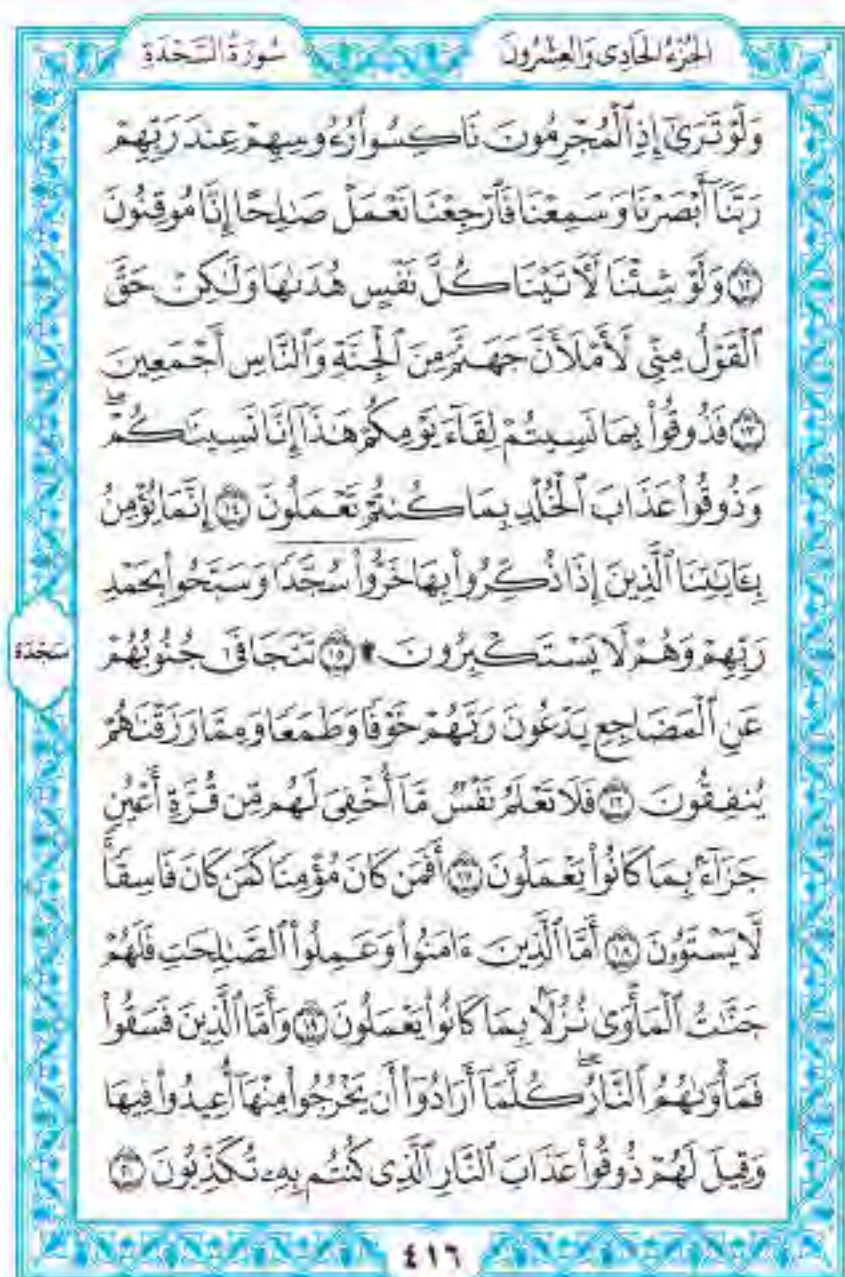 الجُزْءُ الحَادِي وَالعِشْرُونَ
سُورَةُ السَّجْدَةِ
وَلَوْ تَرَىٰٓ إِذِ ٱلْمُجْرِمُونَ نَاكِسُوا۟ رُءُوسِهِمْ عِندَ رَبِّهِمْ
رَبَّنَآ أَبْصَرْنَا وَسَمِعْنَا فَٱرْجِعْنَا نَعْمَلْ صَٰلِحًا إِنَّا مُوقِنُونَ
۝١٢ وَلَوْ شِئْنَا لَءَاتَيْنَا كُلَّ نَفْسٍ هُدَىٰهَا وَلَٰكِنْ حَقَّ
ٱلْقَوْلُ مِنِّى لَأَمْلَأَنَّ جَهَنَّمَ مِنَ ٱلْجِنَّةِ وَٱلنَّاسِ أَجْمَعِينَ
۝١٣ فَذُوقُوا۟ بِمَا نَسِيتُمْ لِقَآءَ يَوْمِكُمْ هَٰذَآ إِنَّا نَسِينَٰكُمْ ۖ
وَذُوقُوا۟ عَذَابَ ٱلْخُلْدِ بِمَا كُنتُمْ تَعْمَلُونَ ۝١٤ إِنَّمَا يُؤْمِنُ
بِـَٔايَٰتِنَا ٱلَّذِينَ إِذَا ذُكِّرُوا۟ بِهَا خَرُّوا۟ سُجَّدًا وَسَبَّحُوا۟ بِحَمْدِ
رَبِّهِمْ وَهُمْ لَا يَسْتَكْبِرُونَ ۝١٥ تَتَجَافَىٰ جُنُوبُهُمْ
سَجْدَة
عَنِ ٱلْمَضَاجِعِ يَدْعُونَ رَبَّهُمْ خَوْفًا وَطَمَعًا وَمِمَّا رَزَقْنَٰهُمْ
يُنفِقُونَ ۝١٦ فَلَا تَعْلَمُ نَفْسٌ مَّآ أُخْفِىَ لَهُم مِّن قُرَّةِ أَعْيُنٍ
جَزَآءًۢ بِمَا كَانُوا۟ يَعْمَلُونَ ۝١٧ أَفَمَن كَانَ مُؤْمِنًا كَمَن كَانَ فَاسِقًا ۚ
لَّا يَسْتَوُۥنَ ۝١٨ أَمَّا ٱلَّذِينَ ءَامَنُوا۟ وَعَمِلُوا۟ ٱلصَّٰلِحَٰتِ فَلَهُمْ
جَنَّٰتُ ٱلْمَأْوَىٰ نُزُلًۢا بِمَا كَانُوا۟ يَعْمَلُونَ ۝١٩ وَأَمَّا ٱلَّذِينَ فَسَقُوا۟
فَمَأْوَىٰهُمُ ٱلنَّارُ ۖ كُلَّمَآ أَرَادُوٓا۟ أَن يَخْرُجُوا۟ مِنْهَآ أُعِيدُوا۟ فِيهَا
وَقِيلَ لَهُمْ ذُوقُوا۟ عَذَابَ ٱلنَّارِ ٱلَّذِى كُنتُم بِهِۦ تُكَذِّبُونَ ۝٢٠
٤١٦